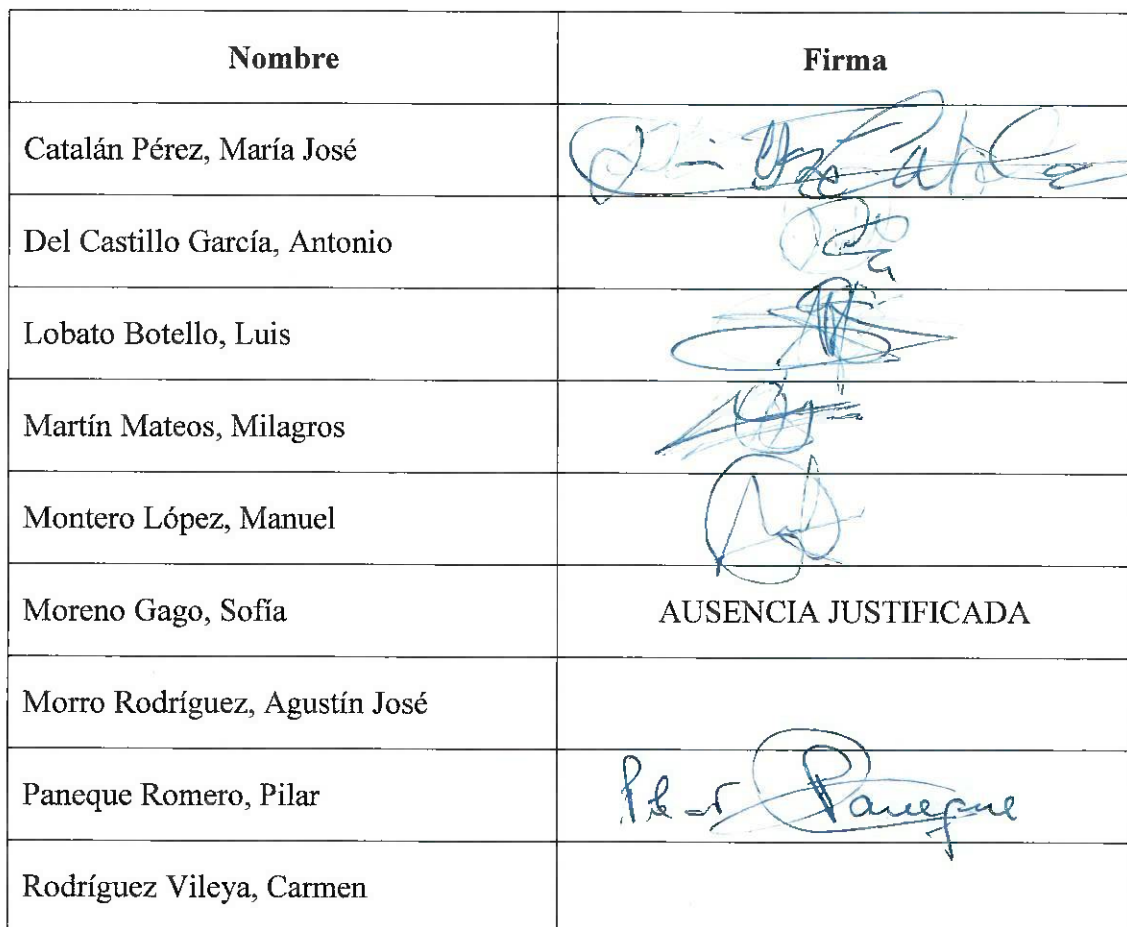 Nombre Firma
Catalán Pérez, María José
Del Castillo García, Antonio
Lobato Botello, Luis
Martín Mateos, Milagros
Montero López, Manuel
Moreno Gago, Sofía AUSENCIA JUSTIFICADA
Morro Rodríguez, Agustín José
Paneque Romero, Pilar Pilar Paneque
Rodríguez Vileya, Carmen